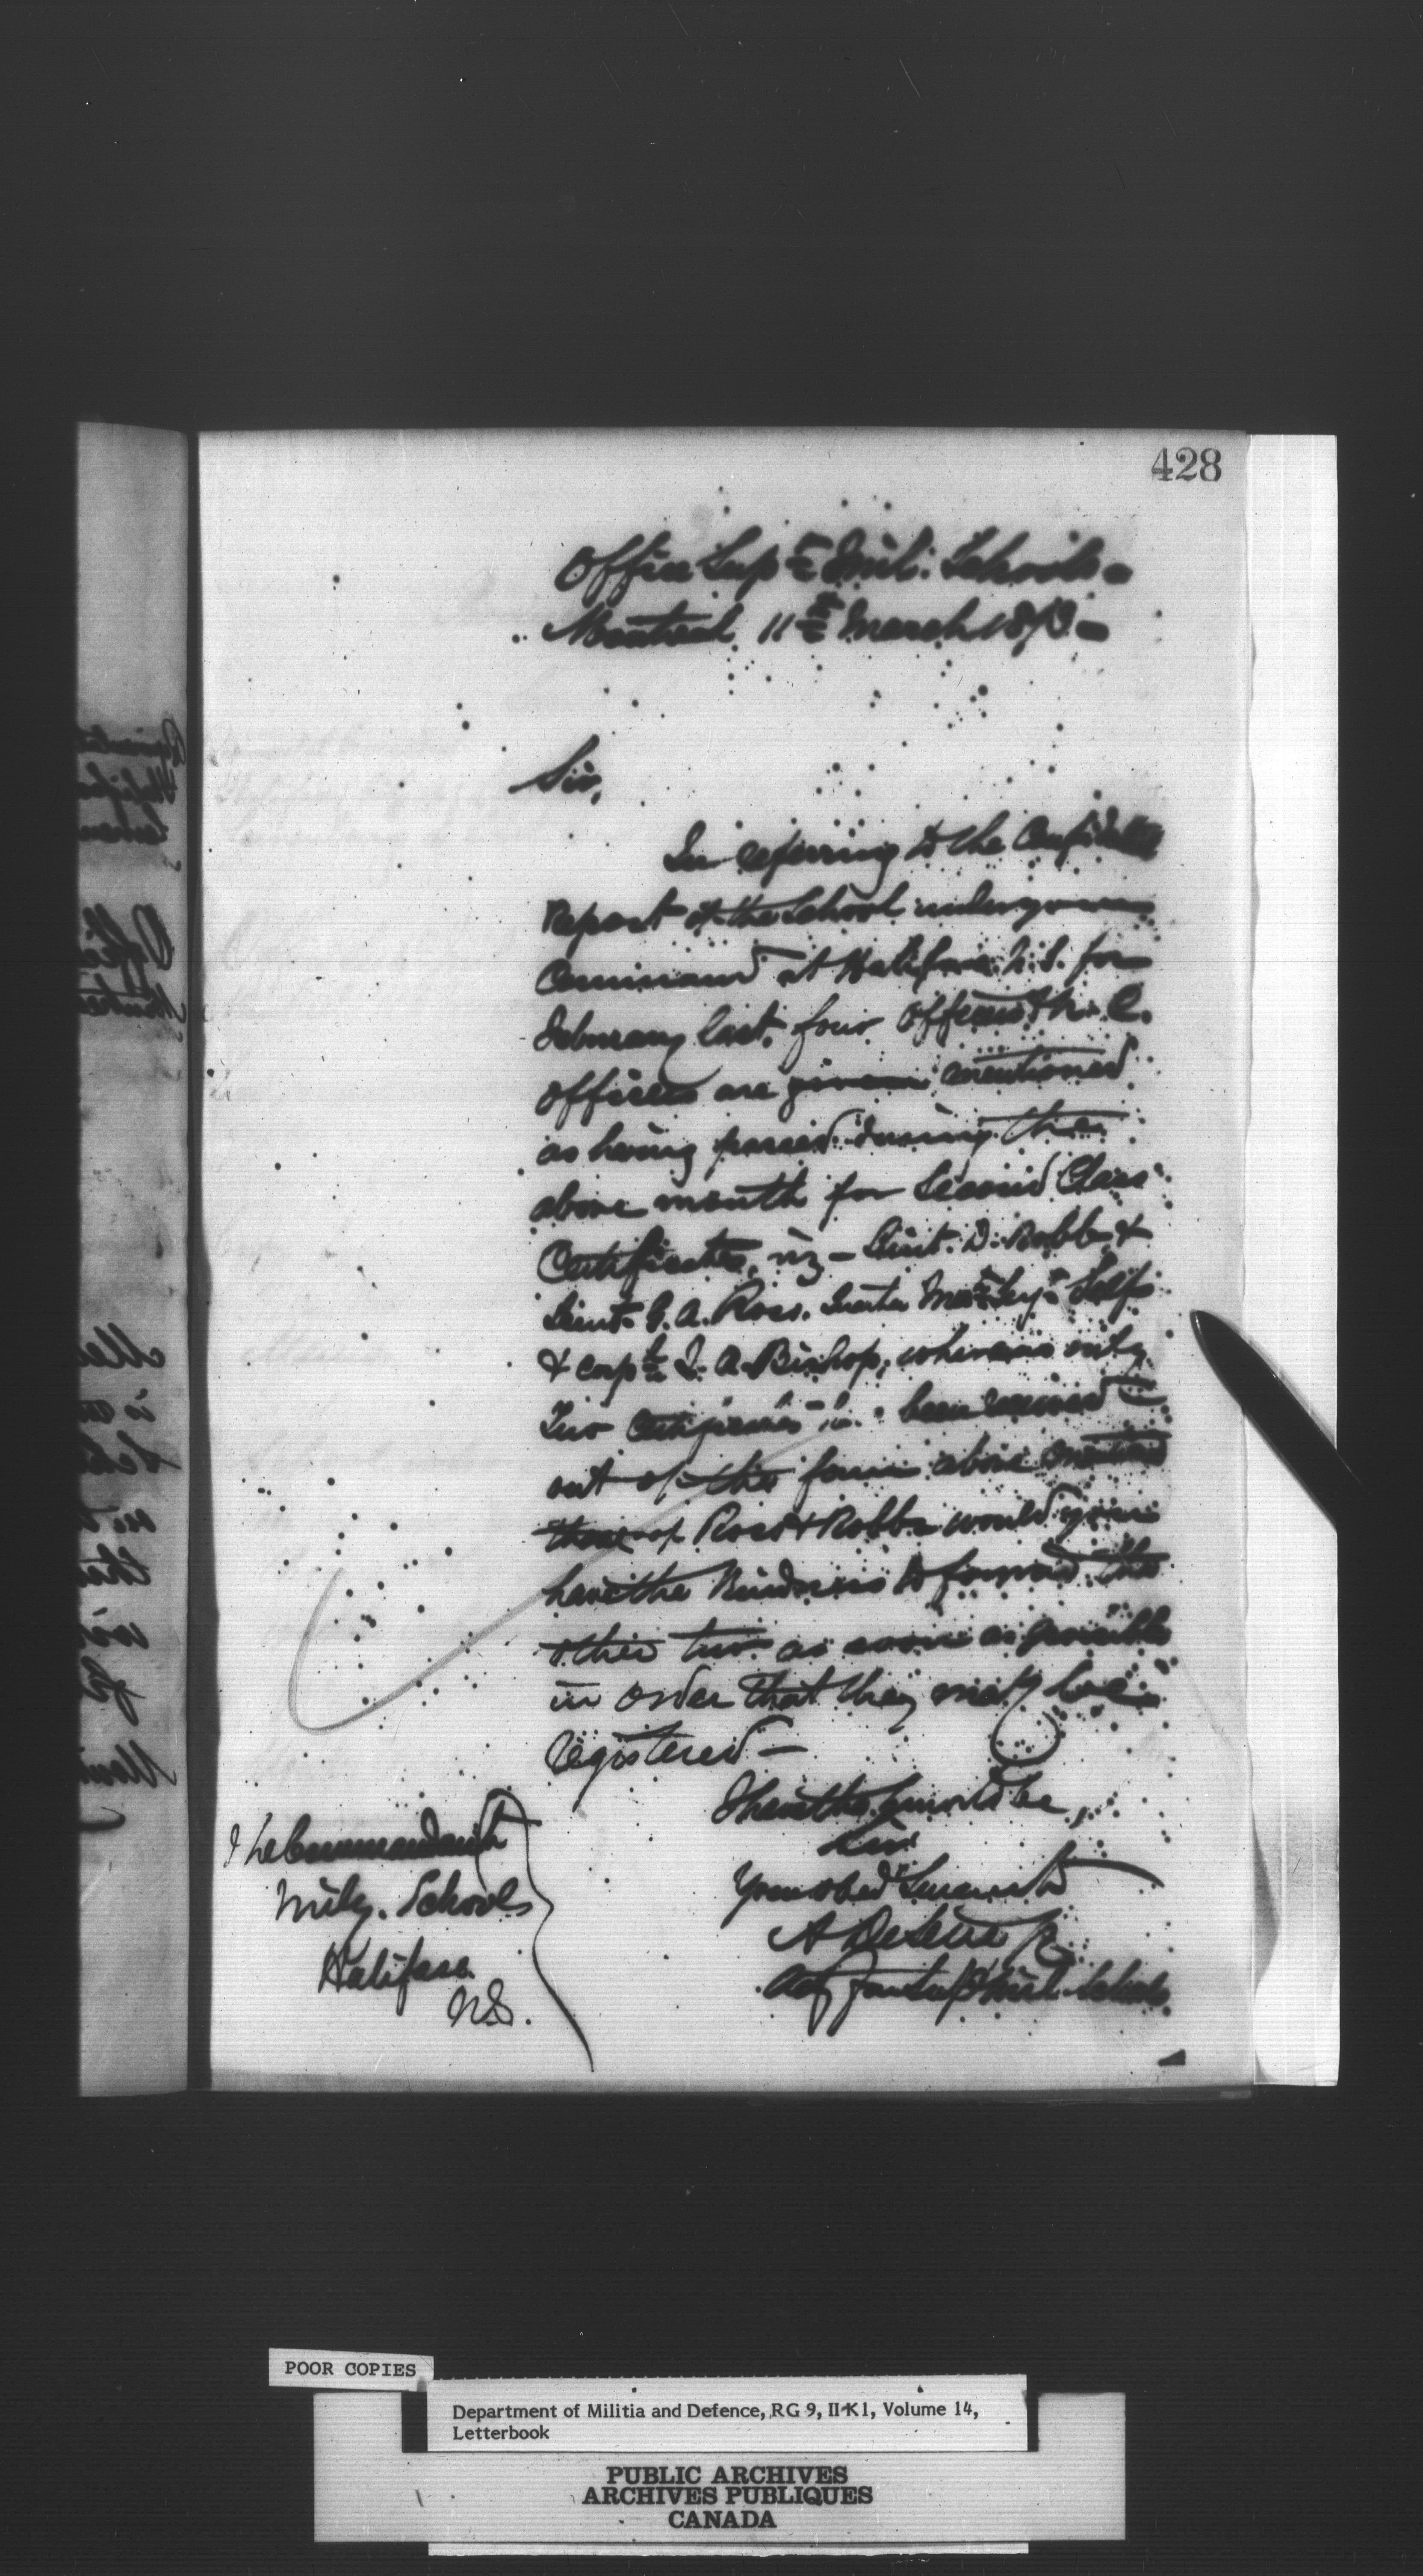 428
Office Supt Mil: Schools -
Montreal 11th March 1873 -
Sir,
In referring to the Confidential
Report of the School under your
Command at Halifax N.S. for
February last, four Officers & N. C.
Officers are given mentioned
as having passed during the
above month for Second Class
Certificates, viz - Lieut. D. Robb &
Lieut. G. A. Ross. Quarter Mas: Serjt Self
& Corpl J. A. Bishop, whereas only
Two Certificates been received
out of the four above mentioned
those of Ross & Robb would you
have the Kindness to forward the
other two as soon as possible
in order that they may be
registered -
I have the honor to be,
Sir
Your obed Servant
A
for Supt Mil Schools.
The Commandant
Mily. Schools
Halifax
N.S.
POOR COPIES
Department of Militia and Defence, RG 9, II-K1, Volume 14,
Letterbook
PUBLIC ARCHIVES
ARCHIVES PUBLIQUES
CANADA